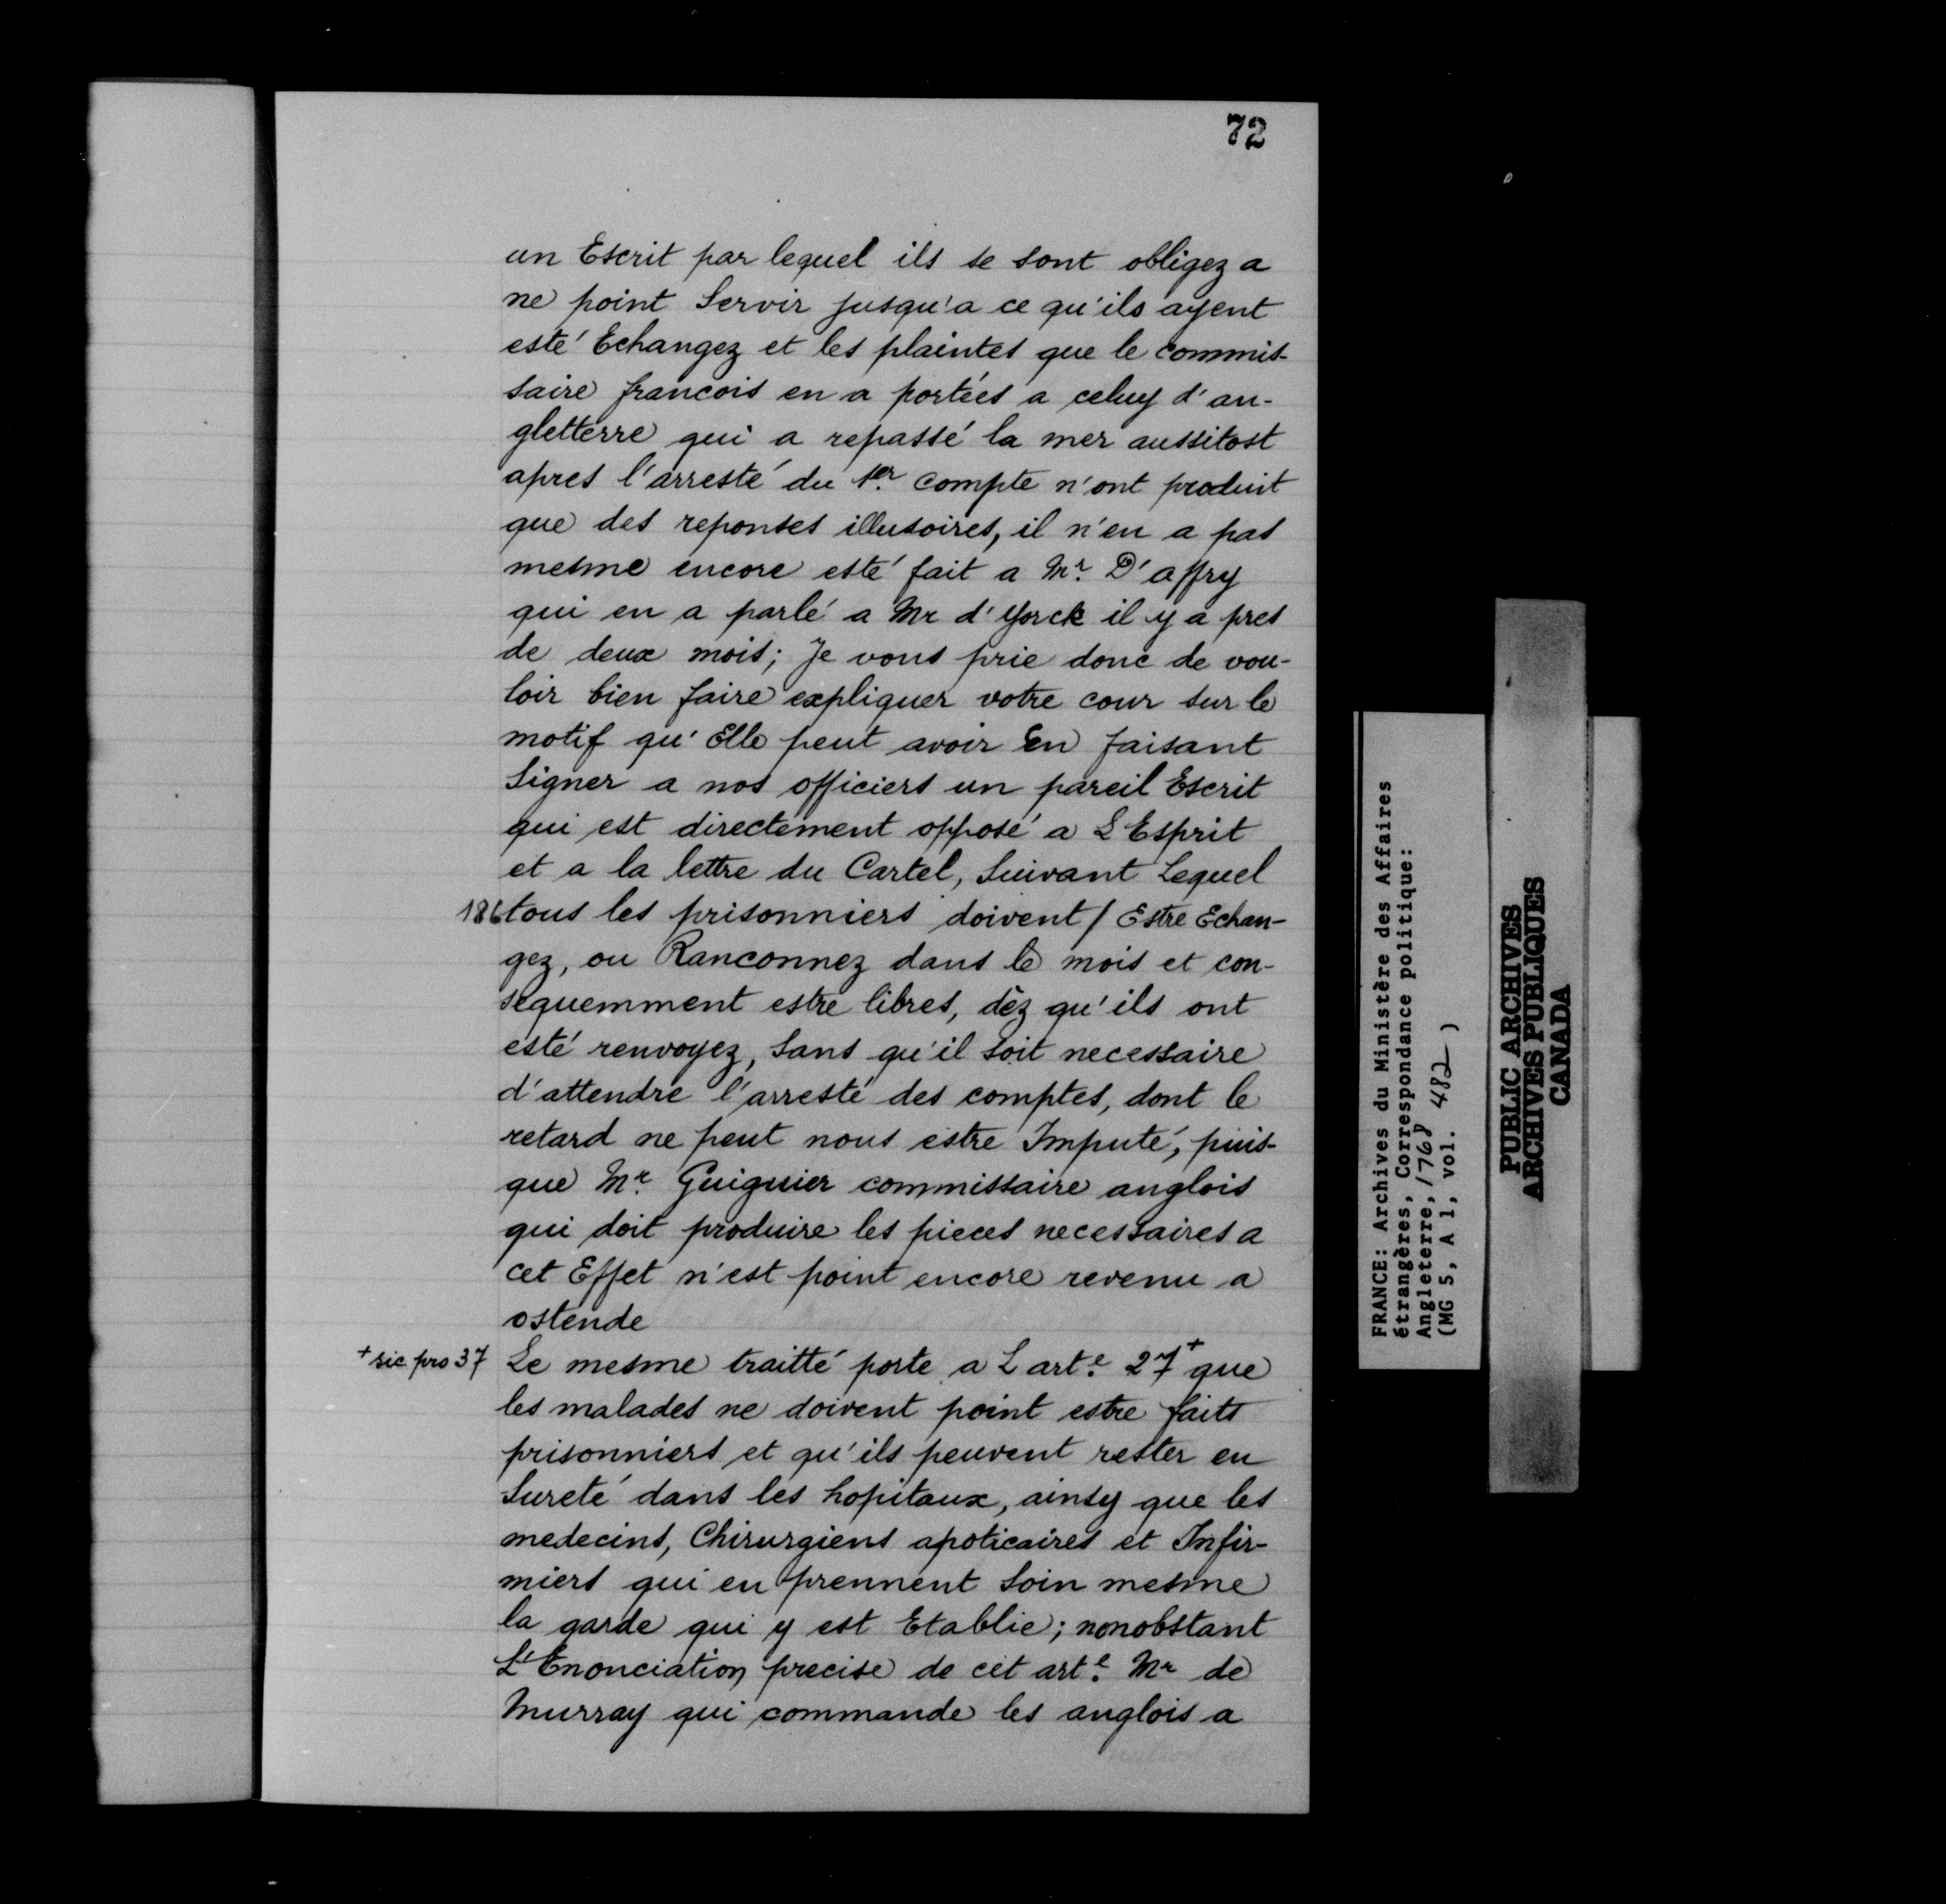 72
un Escrit par lequel ils se sont obligez a
ne point Servir jusqu'a ce qu'ils ayent
esté Echangez et les plaintes que le commis-
saire francois en a portées a celuy d'an-
gletterre qui a repassé la mer aussitost
apres l'arresté du 1er. compte n'ont produit
que des reponses illusoires, il n'en a pas
mesme encore esté fait a Mr. D'affry
qui en a parlé a Mr d'Yorck il y a pres
de deux mois; Je vous prie donc de vou-
loir bien faire expliquer votre cour sur le
motif qu'Elle peut avoir En faisant
Signer a nos officiers un pareil Escrit
qui est directement opposé a L'Esprit
et a la lettre du Cartel, Suivant Lequel
186 tous les prisonniers doivent / Estre Echan-
gez, ou Ranconnez dans le mois et con-
sequemment estre libres, dèz qu'ils ont
esté renvoyez, Sans qu'il soit necessaire
d'attendre l'arresté des comptes, dont le
retard ne peut nous estre Imputé, puis-
que Mr. Guiguier commissaire anglois
qui doit produire les pieces necessaires a
cet Effet n'est point encore revenu a
ostende
+ sic pro 37 Le mesme traitté porte a L'arte. 27+ que
les malades ne doivent point estre faits
prisonniers et qu'ils peuvent rester en
Sureté dans les hopitaux, ainsy que les
medecins, Chirurgiens apoticaires et Infir-
miers qui en prennent Soin mesme
la garde qui y est Etablie; nonobstant
L'Enonciation precise de cet arte. Mr de
Murray qui commande les anglois a
FRANCE: Archives du Ministère des Affaires
étrangères, Correspondance politique:
Angleterre, 1768
(MG 5, A 1, vol. 482 )
PUBLIC ARCHIVES
ARCHIVES PUBLIQUES
CANADA